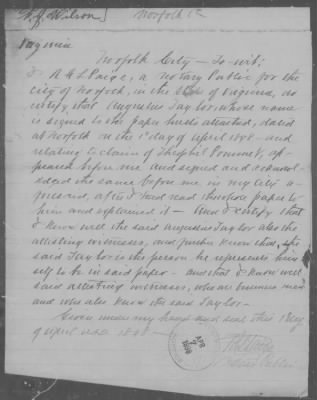 Wilson Norfolk Va
Virginia
Norfolk City — To-wit:
I R H L Paige, a notary Public for the
city of Norfolk, in the State of Virginia, do
certify that Augustus Taylor, whose name
is signed to the paper hereto attached, dated
at Norfolk on the 1st day of April 1898 — and
relating to claim of , ap-
peared before me and signed and acknow-
ledged the same before me in my City a-
foresaid, after I had read the paper to
him and explained it — And I certify that
I know well the said Augustus Taylor also the
attesting witnesses, and further know that, the
said Taylor is the person he represents him
self to be in said paper — and that I know well
said attesting witnesses, who are business men
and who also know the said Taylor —
Given under my hand and seal this day
of April A.D. 1898 —
APR
7
1898
Notary Public